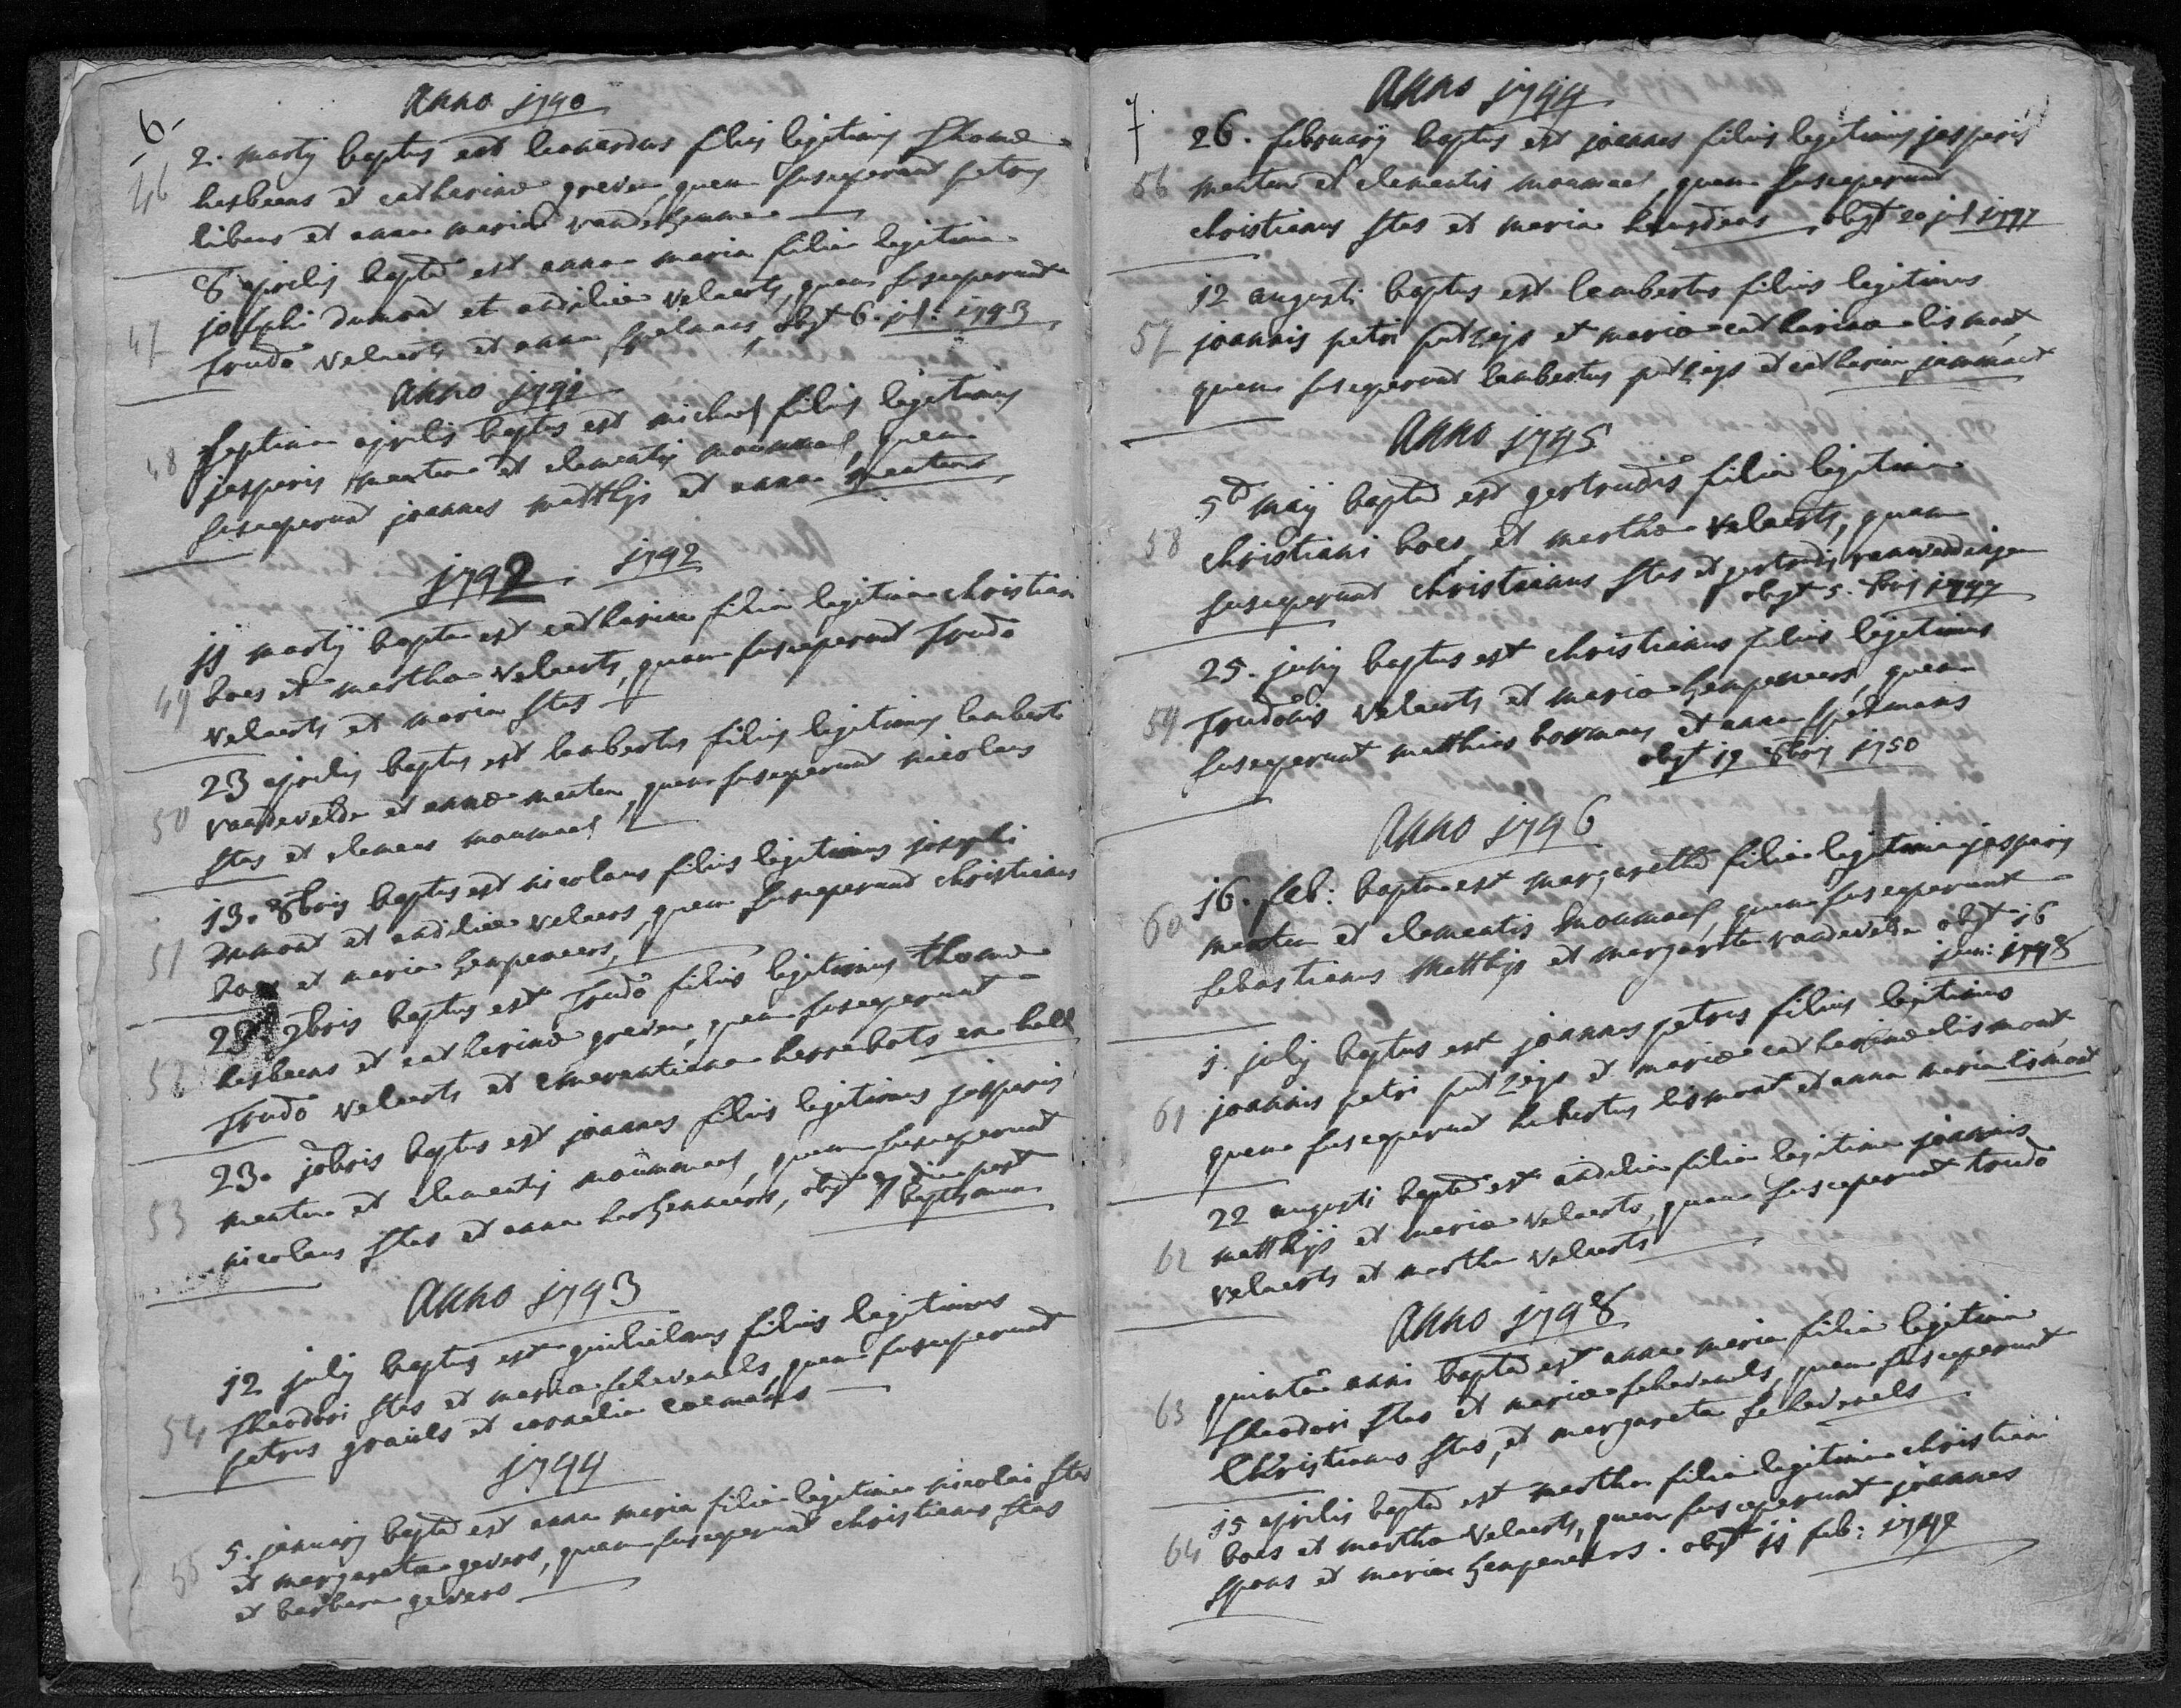 6
Anno 1740
46
2. martij baptus est leonardus filius legitimus thomæ
hesbeens et catharinæ greven, quem susceperunt petrus
libens et anna maria vandehenne
6 aprilis bapta est anna maria filia legitima
47
josephi dumont et odiliæ velaerts, quam susceperunt
trudo velaerts et anna spelmans, obyt 6. jul: 1743
Anno 1741
48
septima aprilis baptus est michael filius legitimus
jasparis menten et clementis moumael, quem
susceperunt joannes matthijs et anna menten
1742. 1742
11 martij bapta est catharina filia legitima christiani
49
boes et martha velaerts, quam susceperunt trudo
velaerts et maria stas
23 aprilis baptus est lambertus filius legitimus lamberti
50
vandevelde et annæ menten, quem susceperunt nicolaus
stas et clemens moumael
13. 8bris baptus est nicolaus filius legitimus josephi
51
dumont et odiliæ velaers, quem susceperunt christianus
boes et maria hempeneers,
29 9bris baptus est trudo filius legitimus thomæ
52
hesbeens et catherinæ greven, quem susceperunt
trudo velaerts et emerentiana herrebots
23. 10bris baptus est joannes filius legitimus jasparis
53
menten et clementis moummael, quem susceperunt
nicolaus stas et anna obyt die post
baptisma
Anno 1743
12 julij baptus est guilielmus filius legitimus
54
theodori stas et maria schevenels, quem susceperunt
petrus graiels et cornelia coemans
1744
5. january bapta est anna maria filia legitima nicolai stas
55
et margareta gevers, quam susceperunt christianus stas
et barbara gevers
7
Anno 1744
26. february baptus est joannes filius legitimus jasparis
56
menten et clementis moumael, quem susceperunt
christianus stas et maria heusdens obyt 20 jul 1747
12 augusti baptus est lambertus filius legitimus
57
joannis petri putzeys et mariæ catharinæ lismont
quem susceperunt lambertus putzeys et catharina jammaer
Anno 1745
5ta maij bapta est gertrudis filia legitima
58
christiani boes, et martha velaerts, quam
susceperunt christianus stas et gertrudis vanweddingen
obyt 5. 1747
25. junij baptus est christianus filius legitimus
59
trudonis velaerts et maria hempeneers, quem
susceperunt matthias bormans et anna spelmans
obyt 19 8bris 1750
Anno 1746
16. feb: bapta est margaretha filia legitima jasparis
60
menten et clementis moumael, quam susceperunt
sebastianus matthijs et margareta vandevelde obyt 16
jan: 1748
1. julij baptus est joannes petrus filius legitimus
61
joannis petri putzeys et mariæ catharinæ lismont
quem susceperunt hubertus lismont et anna maria lismont
22 augusti bapta est odilia filia legitima joannis
62
matthijs et maria velaerts, quam susceperunt trudo
velaerts et martha velaerts
Anno 1748
63
quinta anni bapta est anna maria filia legitima
theodori stas et mariæ schevenels, quam susceperunt
Christianus stas, et margareta schevenels
15 aprilis bapta est martha filia legitima christiani
64
boes et martha velaerts, quam susceperunt joannes
spons et maria hempeneers. obyt 11 feb: 1749